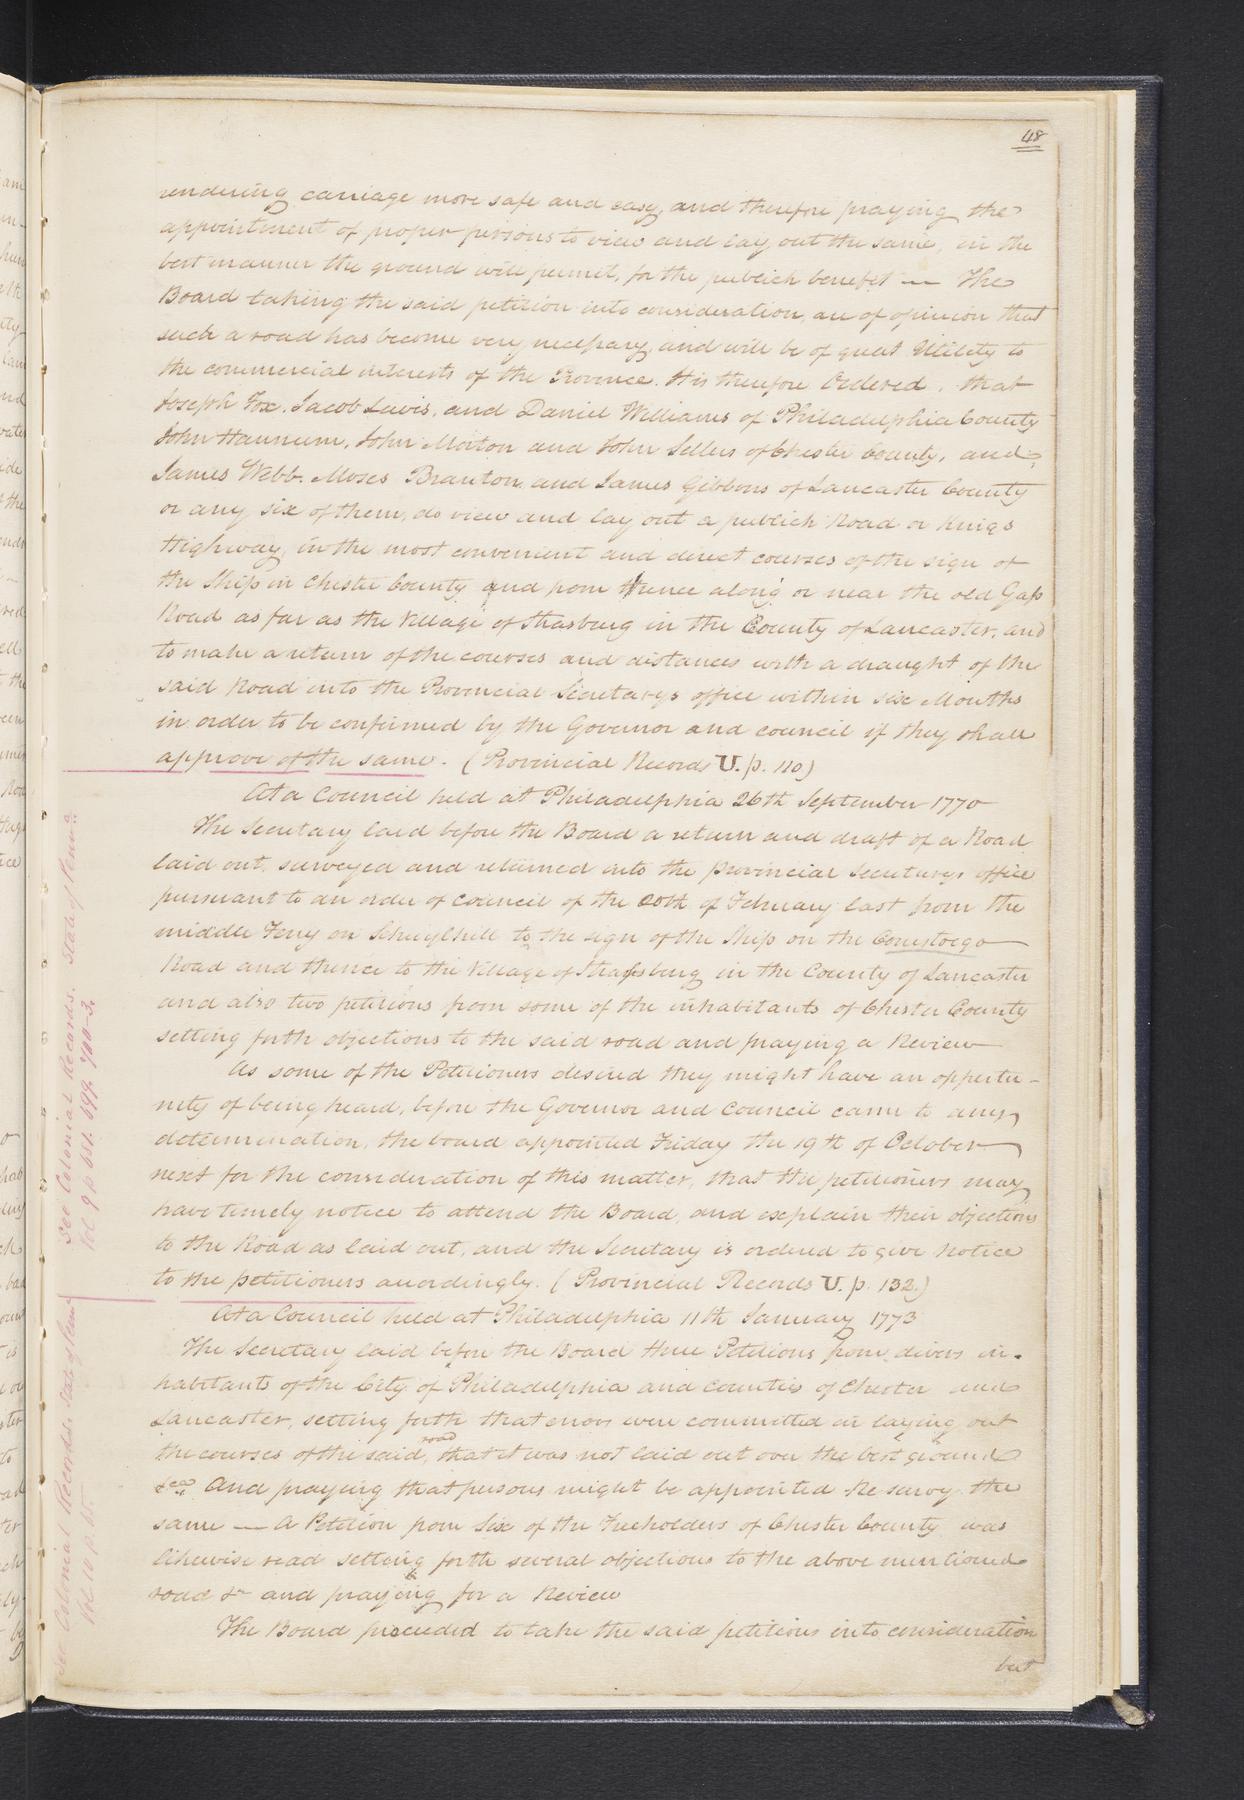 48
rendering carriage more safe and easy, and therefore praying the
appointment of proper persons to view and lay out the same, in the
best manner the ground will permit, for the publick benefit — The
Board taking the said petition into consideration, are of opinion that
such a road has become very necessary, and will be of great Utility to
the commercial interests of the Province. It is therefore Ordered, that
Joseph Fox, Jacob Lewis, and Daniel Williams of Philadelphia County
John Hannum, John Morton and John Sellers of Chester County, and
James Webb, Moses Branton and James Gibbons of Lancaster County
or any six of them, do view and lay out a publick Road or Kings
Highway, in the most convenient and direct courses of the sign of
the Ship in Chester County and from thence along or near the old Gap
Road as far as the Village of Strasburg in the County of Lancaster, and
to make a return of the courses and distances with a draught of the
said Road into the Provincial Secretarys office within six Months
in order to be confirmed by the Governor and council if they shall
approve of the same. (Provincial Records U. p. 110)
At a Council held at Philadelphia 26th September 1770
The Secretary laid before the Board a return and draft of a Road
laid out, surveyed and returned into the provincial Secretarys office
pursuant to an order of Council of the 20th of February last from the
middle Ferry on Schuylkill to the sign of the Ship on the Conestoego
Road and thence to the Village of Strasburg in the County of Lancaster
and also two petitions from some of the inhabitants of Chester County
setting forth objections to the said road and praying a Review
As some of the Petitioners desired they might have an opportu-
nity of being heard, before the Governor and Council came to any
determination, the board appointed Friday the 19th of October
next for the consideration of this matter, that the petitioners may
have timely notice to attend the Board, and explain their objections
to the Road as laid out, and the Secretary is ordered to give Notice
to the petitioners accordingly. (Provincial Records U. p. 132.)
At a Council held at Philadelphia 11th January 1773
The Secretary laid before the Board three Petitions from divers in-
habitants of the City of Philadelphia and counties of Chester and
Lancaster, setting forth that errors were committed in laying out
the courses of the said road, that it was not laid out over the best ground
&ca And praying that persons might be appointed Re survey the
same — A Petition from Six of the Freeholders of Chester County was
likewise read setting forth several objections to the above mentioned
road &c and praying for a Review
The Board proceeded to take the said petitions into consideration
but
See Colonial Records. State of Penna.
Vol 9 p 651. 699. 700-3.
See Colonial Records State of Penna
Vol 10 p. 65.